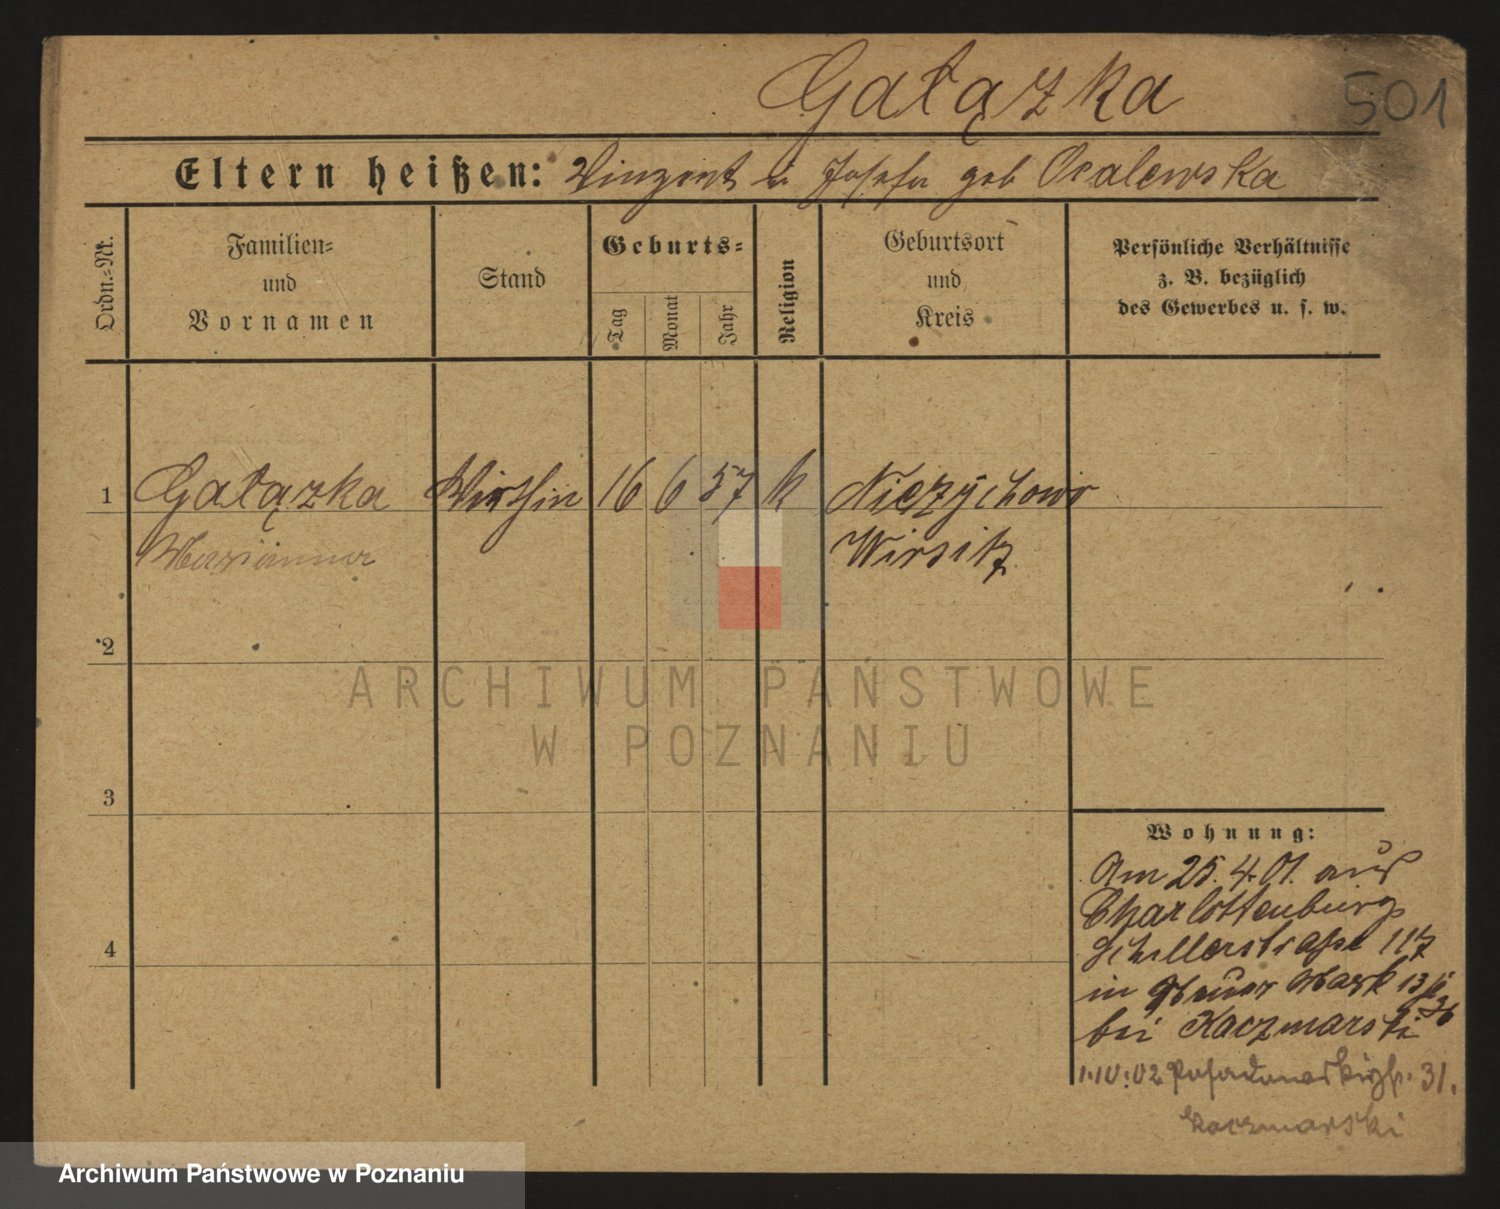 Gałązka
501
Eltern heißen: Vinzent u Josefa geb Ocalewska
Ordn.-Nr.
Familien-
und
Vornamen
Stand
Geburts-
Tag
Monat
Jahr
Religion
Geburtsort
und
Kreis
Persönliche Verhältnisse
z. B. bezüglich
des Gewerbes u. s. w.
1 Gałązka Wirthin 16 6 57 k Niezychowo
Marianna Wirsitz
2
3
4
Wohnung:
Am 25.4.01. aus
Charlottenburg
Schillerstraße 117
in Neuer Mark 13
bei Kaczmarski
1.10.02 31.
Kaczmarski
ARCHIWUM PAŃSTWOWE
W POZNANIU
Archiwum Państwowe w Poznaniu